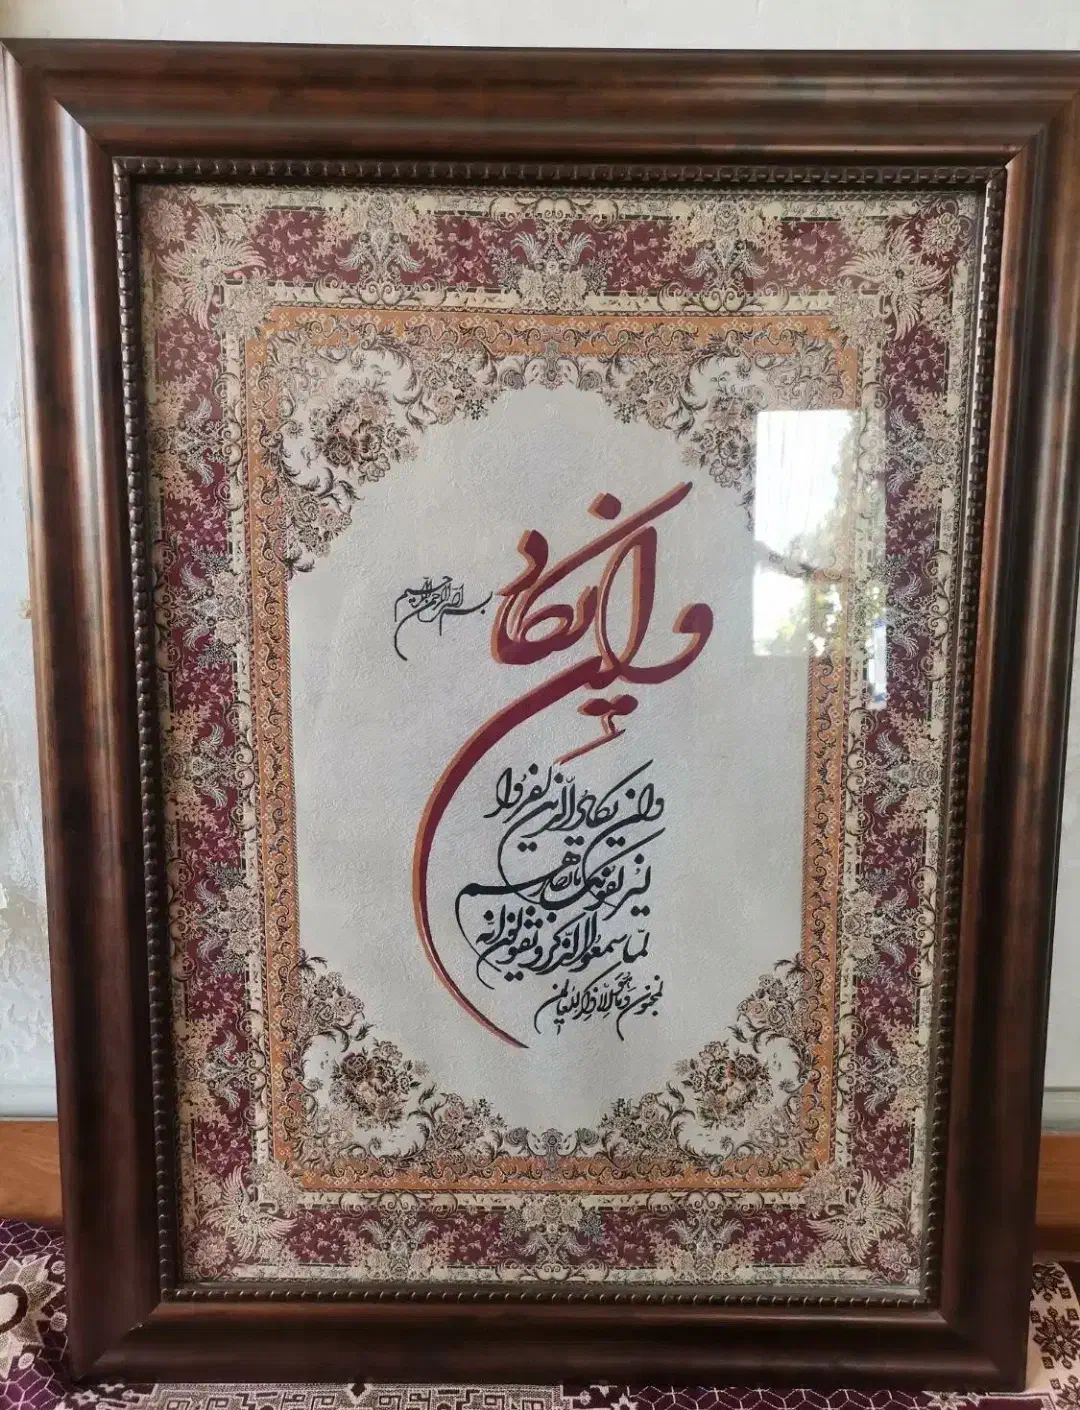 وان یکاد
بسم الله الرحمن الرحیم
وان یکاد الذین کفروا
لیزلقونک بابصارهم
لما سمعوا الذکر و یقولون انه
لمجنون و ما هو الا ذکر للعالمین